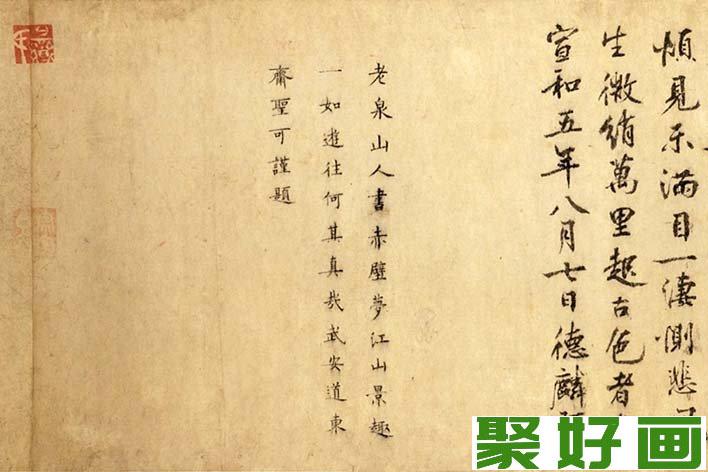 煩見示滿目一淒惻悲
生微綃萬里起古色者
宣和五年八月七日德麟
老泉山人書赤壁夢江山景趣
一如遊往何其真哉武安道東
齋聖可謹題
聚好画